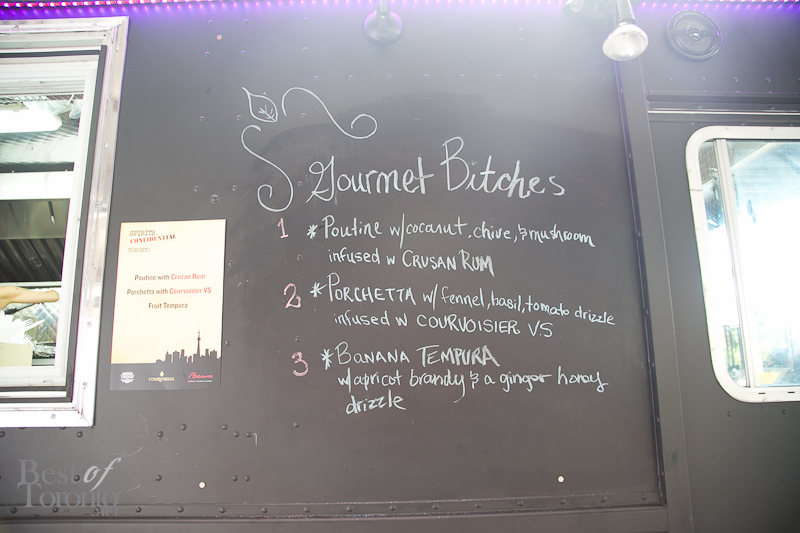 Gourmet Bitches
1 * Poutine w/cocanut, chive, & mushroom
infused w CRUSAN RUM
2 * PORCHETTA w/ fennel, basil, tomato drizzle
infused w COURVOISIER V.S
3 * BANANA TEMPURA
w/apricot brandy & a ginger honey
drizzle
SPIRITS
CONFIDENTIAL
TORONTO
Poutine with Cruzan Rum
Porchetta with Courvoisier VS
Fruit Tempura
COURVOISIER
Beam
Best of
Toronto
.net